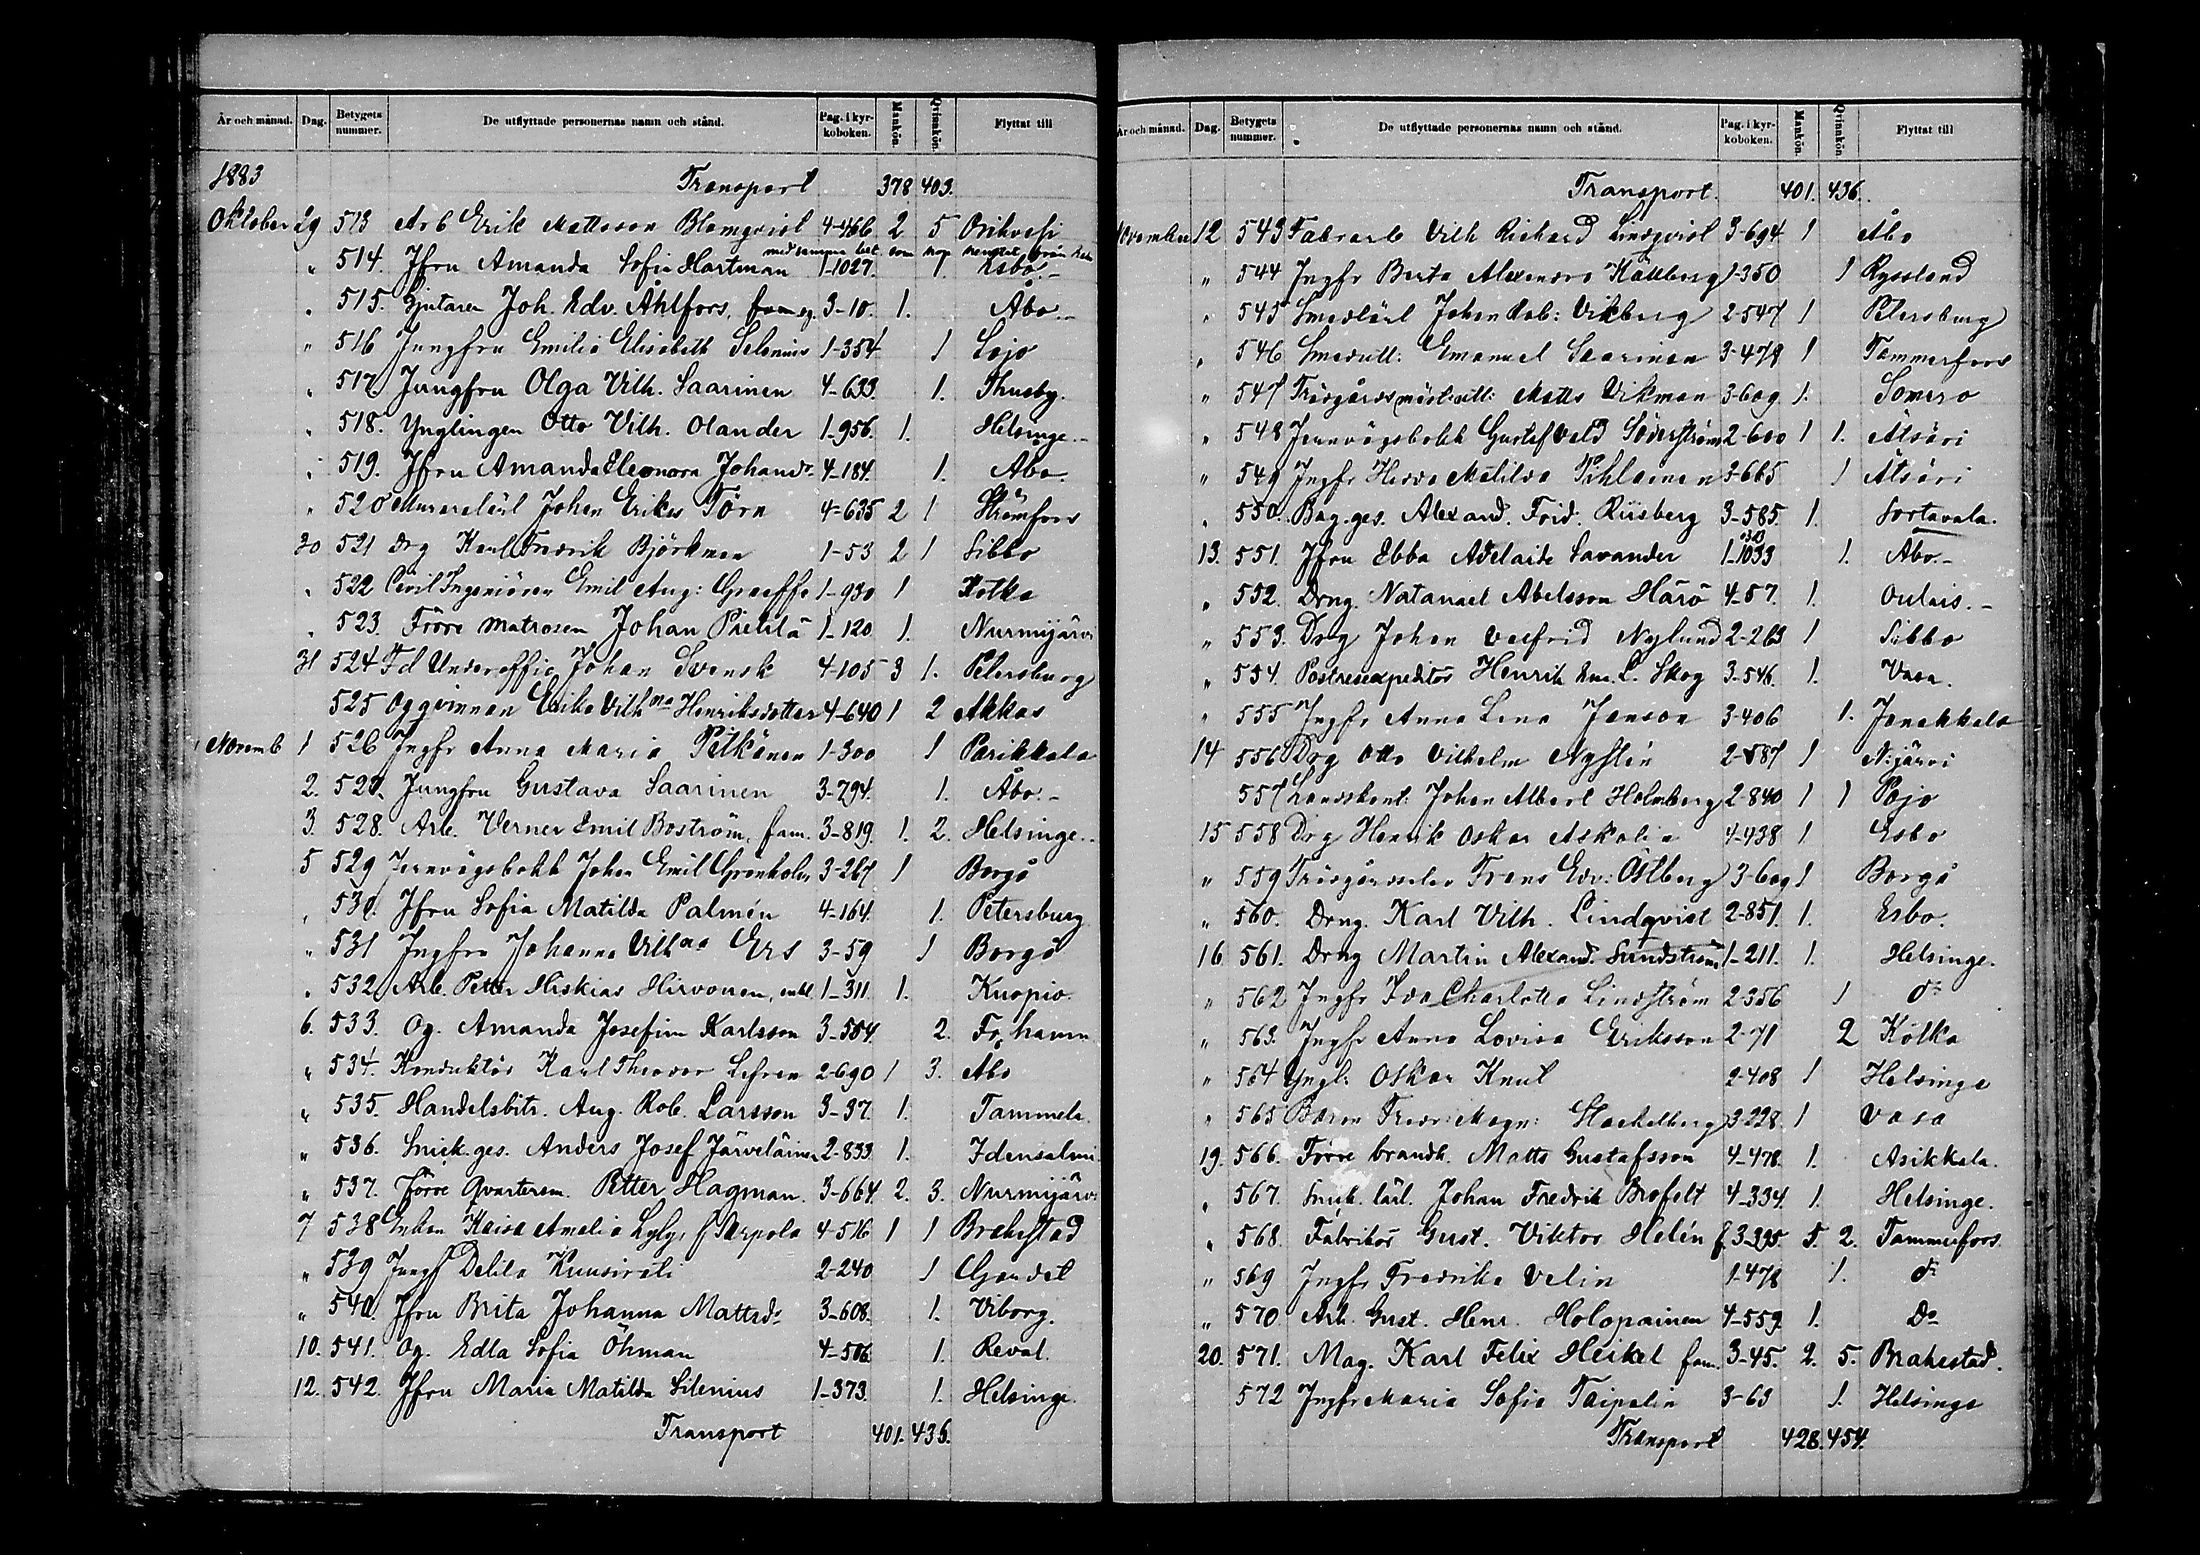 År och månad. Dag. Betygets nummer. De utflyttade personernas namn och stånd. Pag. i kyrkoboken. Mankön. Qvinnkön. Flyttat till
1883 Transport 378 403.
Oktober 29 513 Arb Erik Mattsson Blomqvist 4-466 2 5 Orihvesi
med samma bet som
" 514. Jfru Amanda Sofia Hartman 1-1027. 1. Esbo.-
" 515. Gjutaren Joh. Edv. Åhlfors, 3-10. 1. Åbo.-
" 516 Jungfru Emilia Elisabeth Selenius 1-354 1 Lojo
" 517 Jungfru Olga Vilh. Saarinen 4-633. 1. Thusby.
" 518. Ynglingen Otto Vilh. Olander 1-956. 1. Helsinge.-
" 519. Jfru Amanda Eleonora Johansdr. 4-184. 1. Åbo.
" 520 Murarelärl Johan Erikss Törn 4-635 2 1 Strömfors
30 521 Drg Karl Fredrik Björkman 1-53 2 1 Sibbo
" 522 Civil Ingeniören Emil Aug: Graeffe 1-930 1 Kotka
" 523. Förre matrosen Johan Pietilä 1-120 1. Nurmijärvi
31 524 Fd Underoffic Johan Svensk 4-105 3 1. Petersburg
525 Ogqvinnan Erika Vilhna Henriksdotter 4-640 1 2 Akkas
Novemb 1 526 Jngfr Anna Maria Pitkänen 1-300 1 Parikkala
2. 527. Jungfru Gustava Saarinen 3-794. 1. Åbo.-
3. 528. Arb. Verner Emil Boström, fam. 3-819. 1. 2. Helsinge..
5 529 Jernvägsbokh Johan Emil Grönholm 3-267 1 Borgå
" 530. Jfru Sofia Matilda Palmén 4-164. 1. Petersburg
" 531 Jngfru Johanna Vilhna Ers 3-59 1 Borgå
" 532 Arb. Petter Hiskias Hirvonen, enkl. 1-311. 1. Kuopio.
6. 533. Og. Amanda Josefina Karlsson 3-554. 2. Fr:hamn
" 534. Konduktör Karl Theodor Lefren 2-690 1 3. Åbo
" 535. Handelsbitr. Aug. Rob. Larsson 3-37. 1. Tammela.
" 536. Snick.ges. Anders Josef Järveläinen 2-833 1. Idensalmi.
" 537. Förre Qvarterm. Petter Hagman. 3-664. 2. 3. Nurmijärvi
7 538 Enkan Kaisa Amalia Lyly, f Tarpola 4-516 1 1 Brahestad
" 539 Jungf Delila Kuusirati 2-240 1 Gamlat
" 540. Jfru Brita Johanna Mattsdr 3-608. 1. Viborg.
10. 541. Og. Edla Sofia Öhman 4-506 1. Reval.
12. 542. Jfru Maria Matilda Silenius 1-373. 1. Helsinge.
Transport 401. 436.
År och månad. Dag. Betygets nummer. De utflyttade personernas namn och stånd. Pag. i kyrkoboken. Mankön. Qvinnkön Flyttat till
Transport. 401. 436.
November 12 543 Fabrarb Vilh Richard Lindqvist 3-694 1 Åbo
" 544 Jngfr Berta Alexandra Källberg 1-350 1 Ryssland
" 545 Smedlärl Johan Rob: Vikberg 2-547 1 Petersburg
" 546 Smedutl: Emanuel Saarinen 3-479 1 Tammerfors
" 547 Trädgårdsmäst:utl: Matts Vikman 3-609 1. Somero
" 548 Jernvägsbokh Gustaf Vald Söderström 2-600 1 1. Ätsäri
" 549 Jngfr Hedda Matilda Pihlainen 3-665 1 Ätsäri
" 550. Bag.ges. Alexand. Frid. Riisberg 3-585. 1. Sortavala.
13. 551. Jfru Ebba Adelaide Lavander 1-1033 1. Åbo.-
" 552. Drng. Natanael Abelsson Härö 4-57. 1. Oulais.-
" 553. Drg Johan Valfrid Nylund 2-263 1 Sibbo
" 554. Postresexpeditör Henrik Em. L. Skog 3-546. 1. Vasa.
" 555 Jngfr Anna Lena Janson 3-406 1. Janakkala
14 556 Drg Otto Vilhelm Nystén 2-587 1 N:järvi
557 Landskont. Johan Albert Holmberg 2-840 1 1 Pojo
15 558 Drg Henrik Oskar Askolin 4-438 1 Esbo
" 559 Trädgårdselev Frans Edv: Östberg 3-609 1 Borgå
" 560. Drng. Karl Vilh. Lindqvist 2-851. 1. Esbo.
16 561. Drng Martin Alexand. Sundström 1-211. 1. Helsinge.
" 562 Jngfr Ida Charlotta Lindström 2-356 1 do
" 563. Jngfr Anna Lovisa Eriksson 2-71 2 Kotka
" 564 Yngl: Oskar Knut 2-408 1 Helsinge
" 565 Baron Fredr: Magn: Stackelberg 3-228. 1 Vasa
19. 566. Förre brandk. Matts Gustafsson 4-478. 1. Asikkala.
" 567. Snick. lärl. Johan Fredrik Brofelt 4-334. 1. Helsinge.
" 568. Fabrikör Gust. Viktor Helén f. 3-395. 5. 2. Tammerfors
" 569 Jngfr Fredrika Velin 1-478 1. do
" 570 Arb. Gust. Henr. Holopainen 4-559. 1. Do
20. 571. Mag. Karl Felix Heikel fam. 3-45. 2. 5. Brahestad.
572 Jngfr Maria Sofia Taipalin 3-63 1. Helsinge
Transport 428. 454.